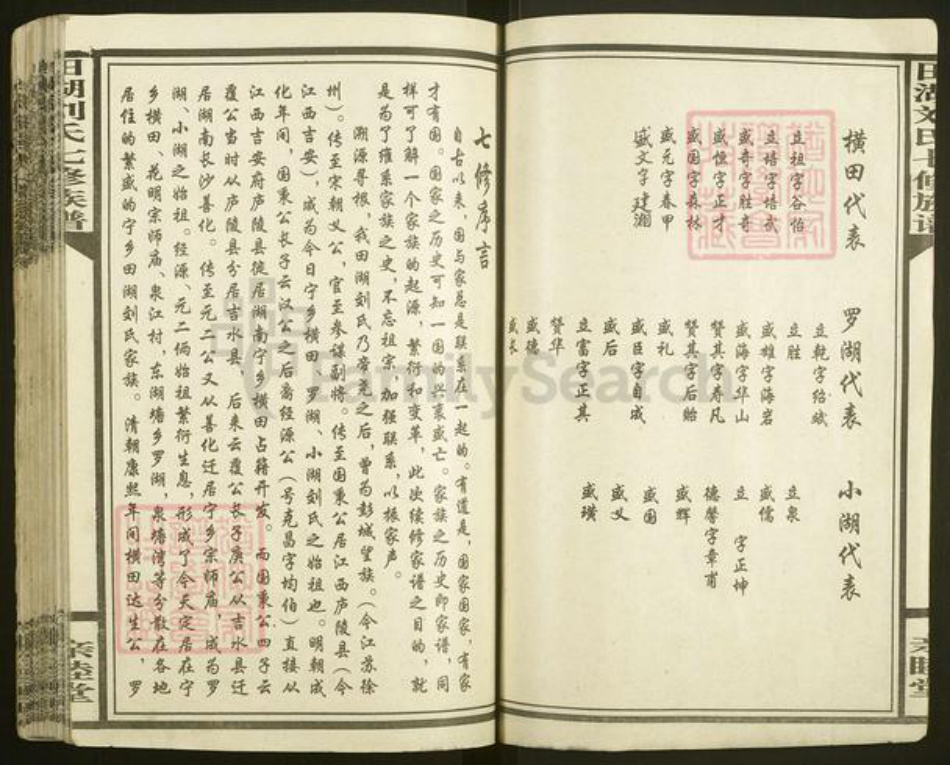 横田代表
立祖字谷怡
立培字培武
盛奇字胜奇
盛恒字正才
盛国字森林
盛元字春甲
盛文字建湘
罗湖代表
立乾字绍斌
立胜
盛雄字海岩
盛海字华山
赞其字寿凡
赞其字后贻
盛礼
盛臣字自成
盛后
立富字正其
赞华
盛德
盛长
小湖代表
立泉
盛儒
立 字正坤
德馨字章甫
盛辉
盛国
盛义
盛璜
七修序言
自古以来，国与家总是联系在一起的。有道是，国家国家，有家
才有国。国家之历史可知一国的兴衰盛亡。家族之历史即家谱，同
样可了解一个家族的起源，繁衍和变革，此次续修家谱之目的，就
是为了维系家族之史，不忘祖宗，加强联系，以振家声。
溯源寻根，我田湖刘氏乃帝尧之后，曾为彭城望族。（今江苏徐
州）。传至宋朝义公，官至参谋副将。传至国秉公居江西庐陵县（今
江西吉安），成为今日宁乡横田、罗湖、小湖刘氏之始祖也。明朝成
化年间，国秉公长子云汉公之后裔经源公（号克昌字均伯）直接从
江西吉安府庐陵县徙居湖南宁乡横田占籍开发。而国秉公四子云
覆公当时从庐陵县分居吉水县，后来云覆公长子庚公从吉水县迁
居湖南长沙善化。传至元二公又从善化迁居宁乡宗师庙，成为罗
湖、小湖之始祖。经源、元二俩始祖繁衍生息，形成了今天定居在宁
乡横田、花明宗师庙、泉江村，东湖塘乡罗湖，泉塘湾等分散在各地
居住的繁盛的宁乡田湖刘氏家族。清朝康熙年间横田达生公，罗
田湖刘氏七修族谱
亲睦堂
田湖刘氏七修族谱
亲睦堂
FamilySearch